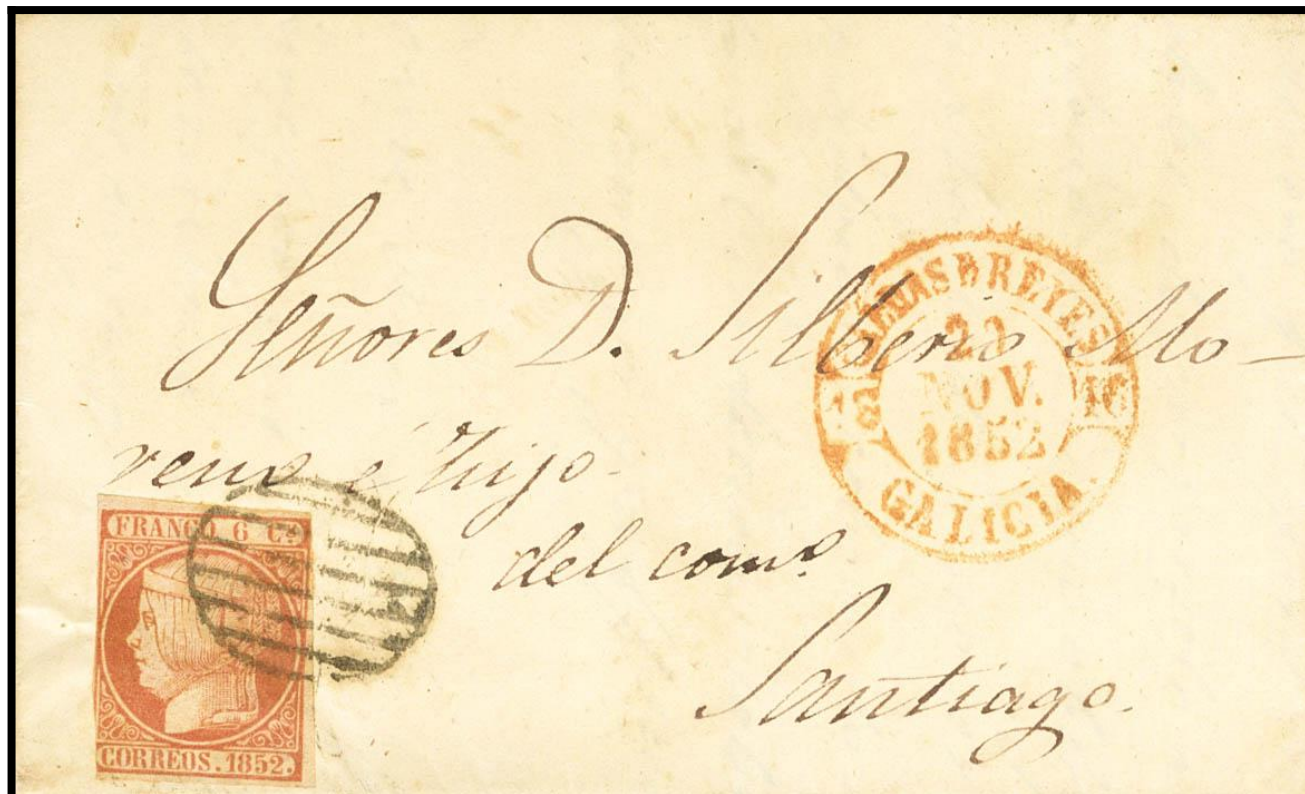 Señores D. Silberio Mo-
reno é hijo
del comº
Santiago.
REYES
NOV.
1852
GALICIA.
16
FRANCO 6 Cs
CORREOS. 1852.